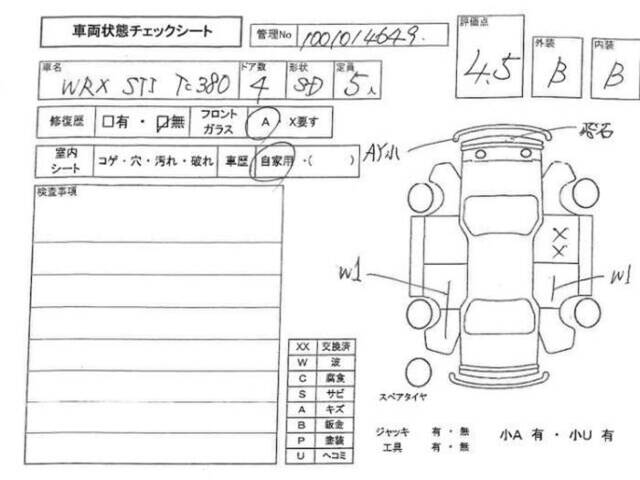 車両状態チェックシート
管理No 1001014649.
評価点 4.5
外装 B
内装 B
車名 WRX STI Tc380
ドア数 4
形状 SD
定員 5人
修復歴 □有 ・ ☑無
フロントガラス A X要す
室内シート コゲ・穴・汚れ・破れ
車歴 自家用 ・( )
検査事項
AY小
飛石
X
X
W1
W1
XX 交換済
W 波
C 腐食
S サビ
A キズ
B 鈑金
P 塗装
U ヘコミ
スペアタイヤ
ジャッキ 有 ・ 無
工具 有 ・ 無
小A 有 ・ 小U 有